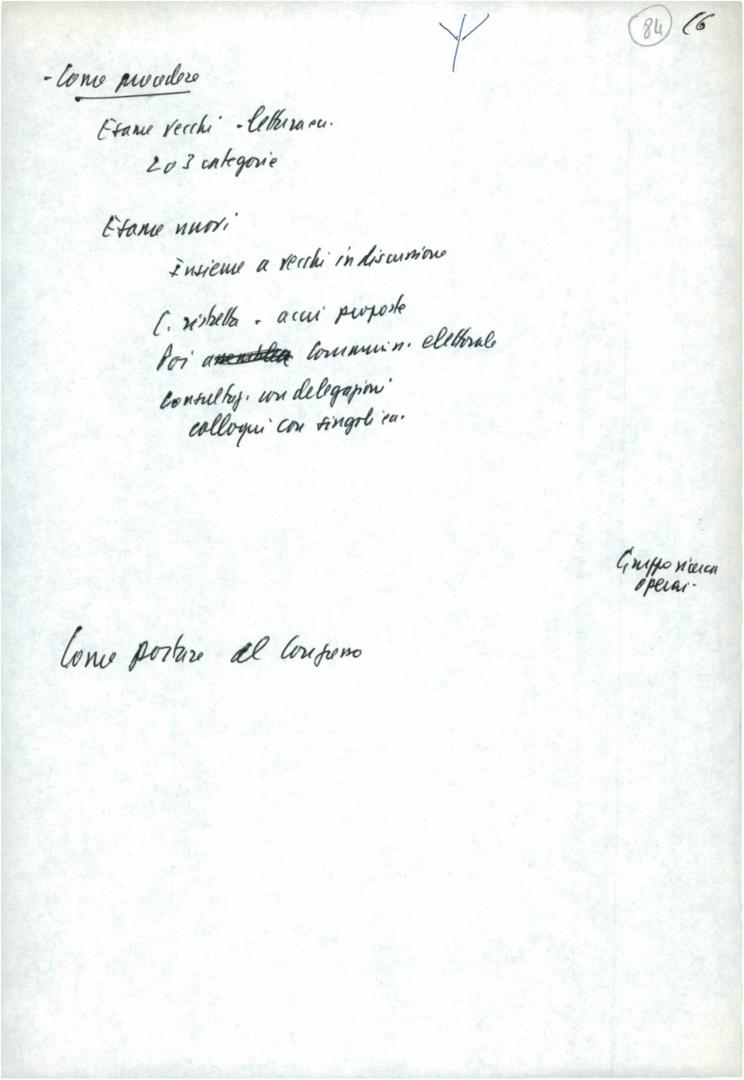 84 16
- Come procedere
Esame vecchi - lettura ecc.
2 o 3 categorie
Esame nuovi
Insieme a vecchi in discussione
C. ristretta - a cui proposte
Poi assemblea Commission. elettorale
Consultaz. con delegazioni
colloqui con singoli ecc.
Gruppo ricerca
operai.
Come portare al Congresso